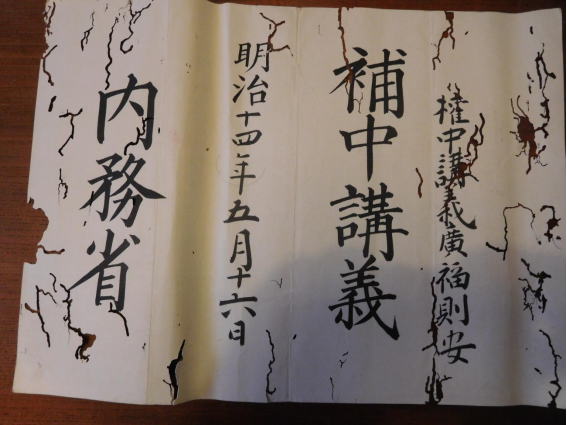 權中講義廣福則安
補中講義
明治十四年五月十六日
內務省